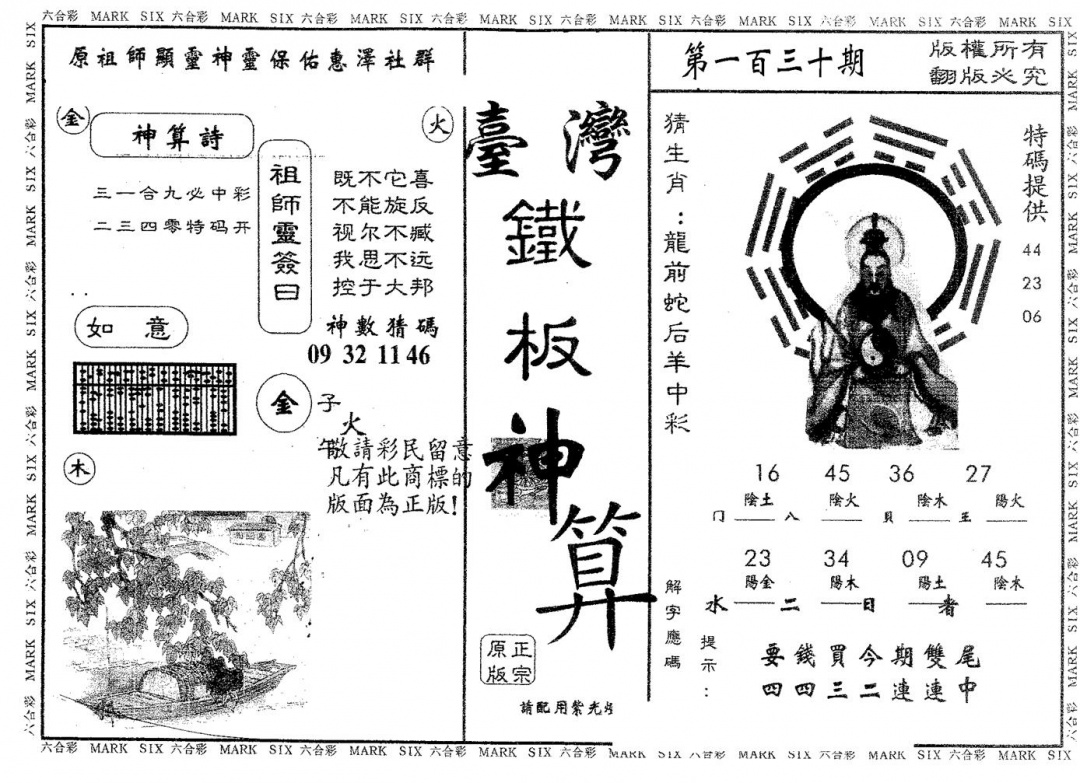 六合彩 MARK SIX 六合彩 MARK SIX 六合彩 MARK SIX 六合彩 MARK SIX 六合彩 MARK SIX 六合彩 MARK SIX 六合彩 MARK SIX 六合彩 MARK SIX
原祖師顯靈神靈保佑惠澤社群
金
神算詩
火
三一合九必中彩
二三四零特码开
祖師靈簽曰
既不它喜
不能旋反
视尔不臧
我思不远
控于大邦
神數猜碼
09 32 11 46
如意
金
子
火
午
敬請彩民留意
凡有此商標的
版面為正版!
木
臺灣
鐵板神算
正宗
原版
請配用紫光
第一百三十期
版權所有
翻版必究
猜生肖:龍前蛇后羊中彩
特碼提供
44
23
06
16 45 36 27
陰土 陰火 陰木 陽火
门 八 貝 王
23 34 09 45
陽金 陽木 陽土 陰木
水 二 日 者
解字應碼
提示:
要錢買今期雙尾
四四三二連連中
六合彩 MARK SIX 六合彩 MARK SIX 六合彩 MARK SIX 六合彩 MARK SIX 六合彩 MARK SIX 六合彩 MARK SIX 六合彩 MARK SIX 六合彩 MARK SIX